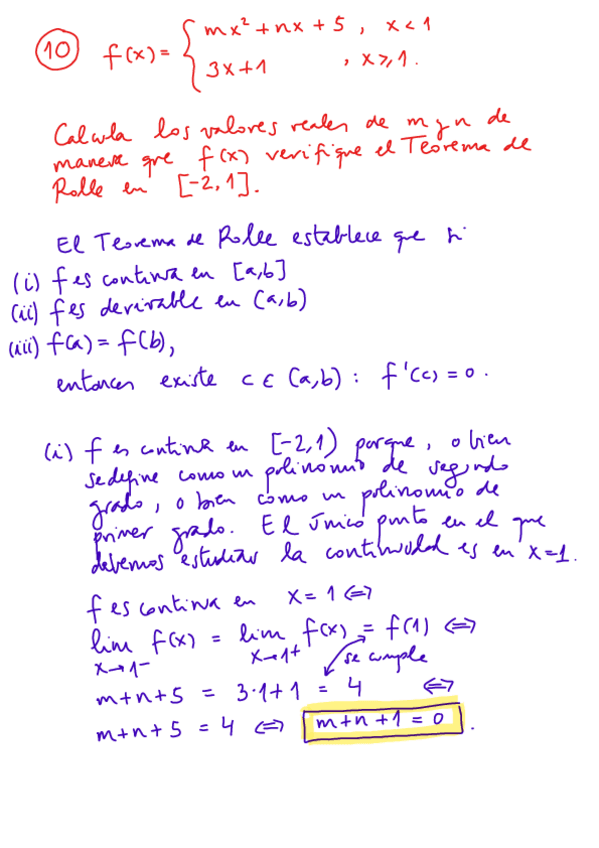 10 f(x) = { mx² + nx + 5 , x < 1
3x + 1 , x ≥ 1.
Calcula los valores reales de m y n de
manera que f(x) verifique el Teorema de
Rolle en [-2,1].
El Teorema de Rolle establece que si
(i) f es continua en [a,b]
(ii) f es derivable en (a,b)
(iii) f(a) = f(b),
entonces existe c ∈ (a,b) : f'(c) = 0.
(i) f es continua en [-2,1) porque, o bien
se define como un polinomio de segundo
grado, o bien como un polinomio de
primer grado. El único punto en el que
debemos estudiar la continuidad es en x=1.
f es continua en x = 1 ⟺
lim f(x) = lim f(x) = f(1) ⟺
x→1⁻ x→1⁺ se cumple
m+n+5 = 3·1+1 = 4 ⟺
m+n+5 = 4 ⟺ m+n+1 = 0.